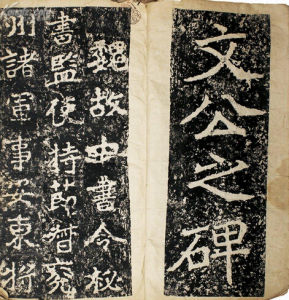 文公之碑
魏故中書令秘
書監使持節督兖
州諸軍事安東將